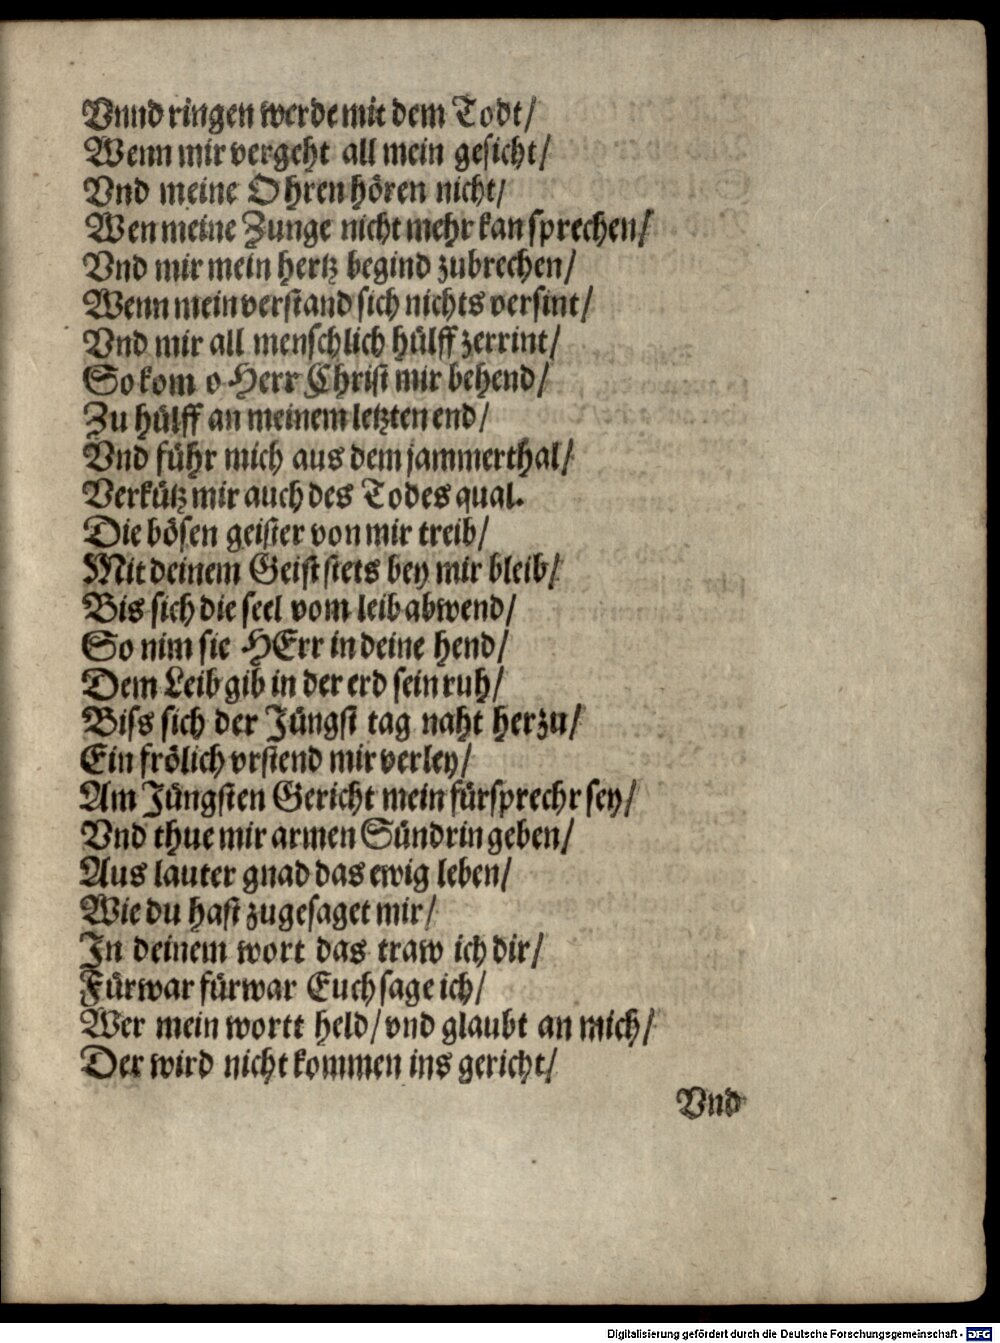 Vnnd ringen werde mit dem Todt/
Wenn mir vergeht all mein gesicht/
Vnd meine Ohren hören nicht/
Wen meine Zunge nicht mehr kan sprechen/
Vnd mir mein hertz begind zubrechen/
Wenn mein verstand sich nichts versint/
Vnd mir all menschlich hülff zerrint/
So kom o Herr Christ mir behend/
Zu hülff an meinem letzten end/
Vnd führ mich aus dem jammerthal/
Verkütz mir auch des Todes qual.
Die bösen geister von mir treib/
Mit deinem Geist stets bey mir bleib/
Bis sich die seel vom leib abwend/
So nim sie HErr in deine hend/
Dem Leib gib in der erd sein ruh/
Biss sich der Jüngst tag naht herzu/
Ein frölich vrstend mir verley/
Am Jüngsten Gericht mein fürsprechr sey/
Vnd thue mir armen Sündrin geben/
Aus lauter gnad das ewig leben/
Wie du hast zugesaget mir/
In deinem wort das traw ich dir/
Fürwar fürwar Euch sage ich/
Wer mein wortt held/ vnd glaubt an mich/
Der wird nicht kommen ins gericht/
Vnd
Digitalisierung gefördert durch die Deutsche Forschungsgemeinschaft - DFG